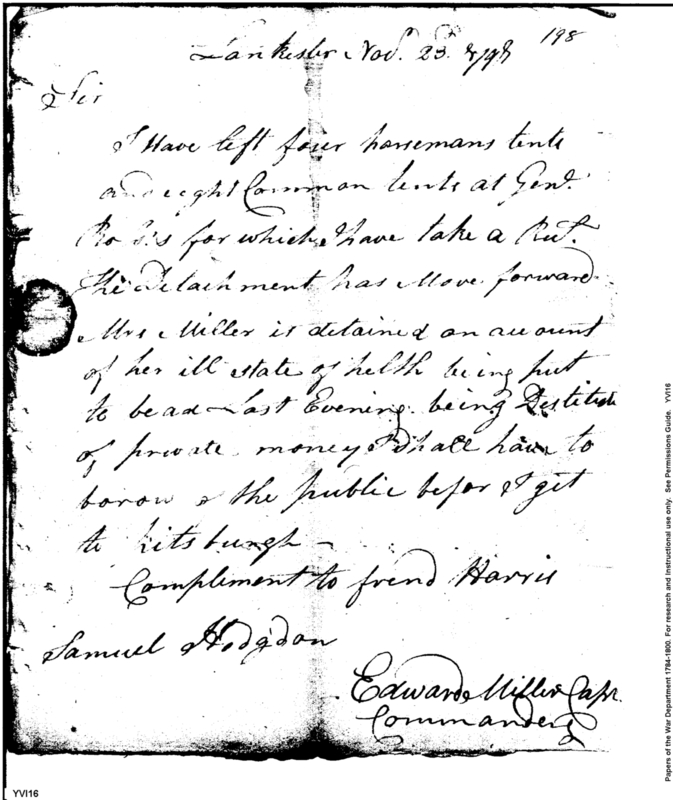 198
Lankester Nov. 23d 1791
Sir
I Have left four horsemans tents
and eight Common tents at Genl.
for which I have take a Rect.
the Detachment has Move forward
Mrs Miller is detained on account
of her ill state of helth being put
to bead Last Evening being Destitute
of private money I shall have to
borow of the public befor I get
to Pitsburgh
Compliment to frend Harris
Samuel Hodgdon
Edward Miller Capt.
Commander
YVI16
Papers of the War Department 1784-1800. For research and instructional use only. See Permissions Guide. YVI16